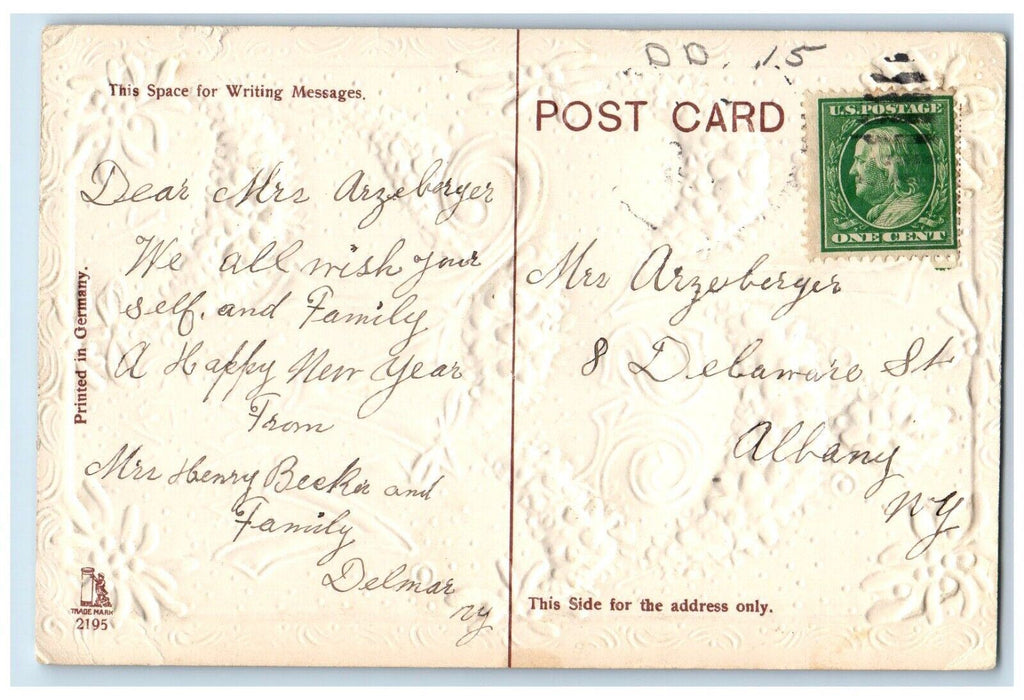 This Space for Writing Messages.
Dear Mrs Arzeberger
We all wish your
self. and Family
A Happy New Year
From
Mrs Henry Becker and
Family
Delmar
NY
Printed in Germany.
TRADE MARK
2195
POST CARD
U.S. POSTAGE
ONE CENT
Mrs Arzeberger
8 Delaware St
Albany
NY
This Side for the address only.